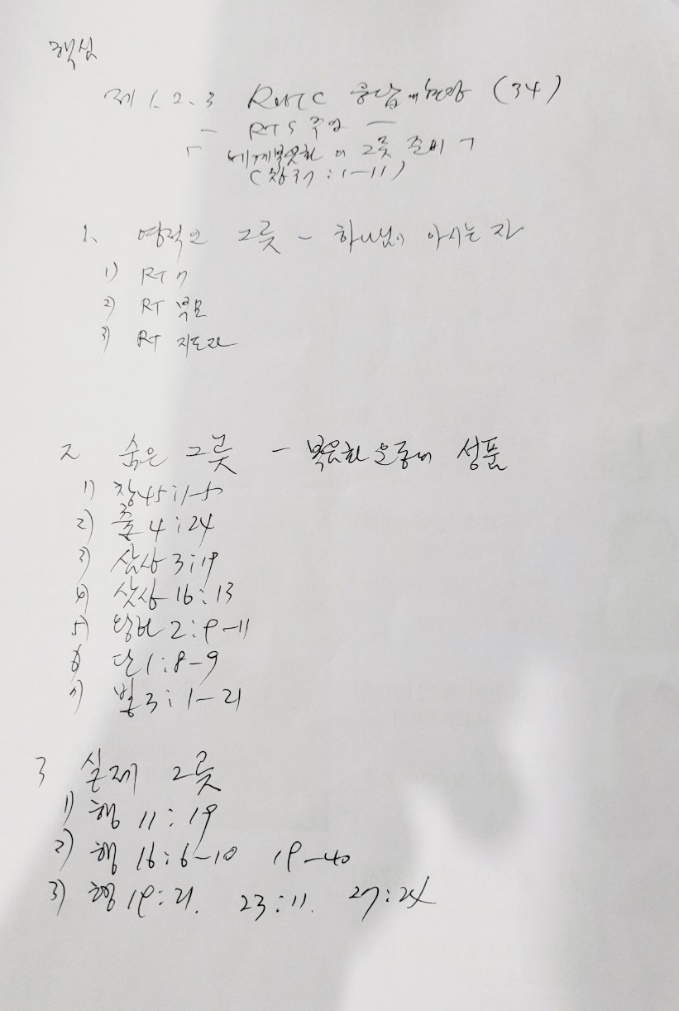 핵심
제 1. 2. 3 RUTC 응답의 현장 (34)
- RT 5 주역 -
「 세계복음화 이 그릇 준비 ㄱ
(창37:1-11)
1. 영적인 그릇 - 하나님이 아시는 자
1) RT 7
2) RT 부모
3) RT 지도자
2 숨은 그릇 - 복음화 운동에 성품
1) 창45:1-5
2) 출 4:24
3) 삼상 3:19
4) 삼상 16:13
5) 왕하 2:9-11
6) 단 1:8-9
7) 빌 3:1-21
3 실제 그릇
1) 행 11:19
2) 행 16:6-10 19-40
3) 행 19:21. 23:11. 27:24